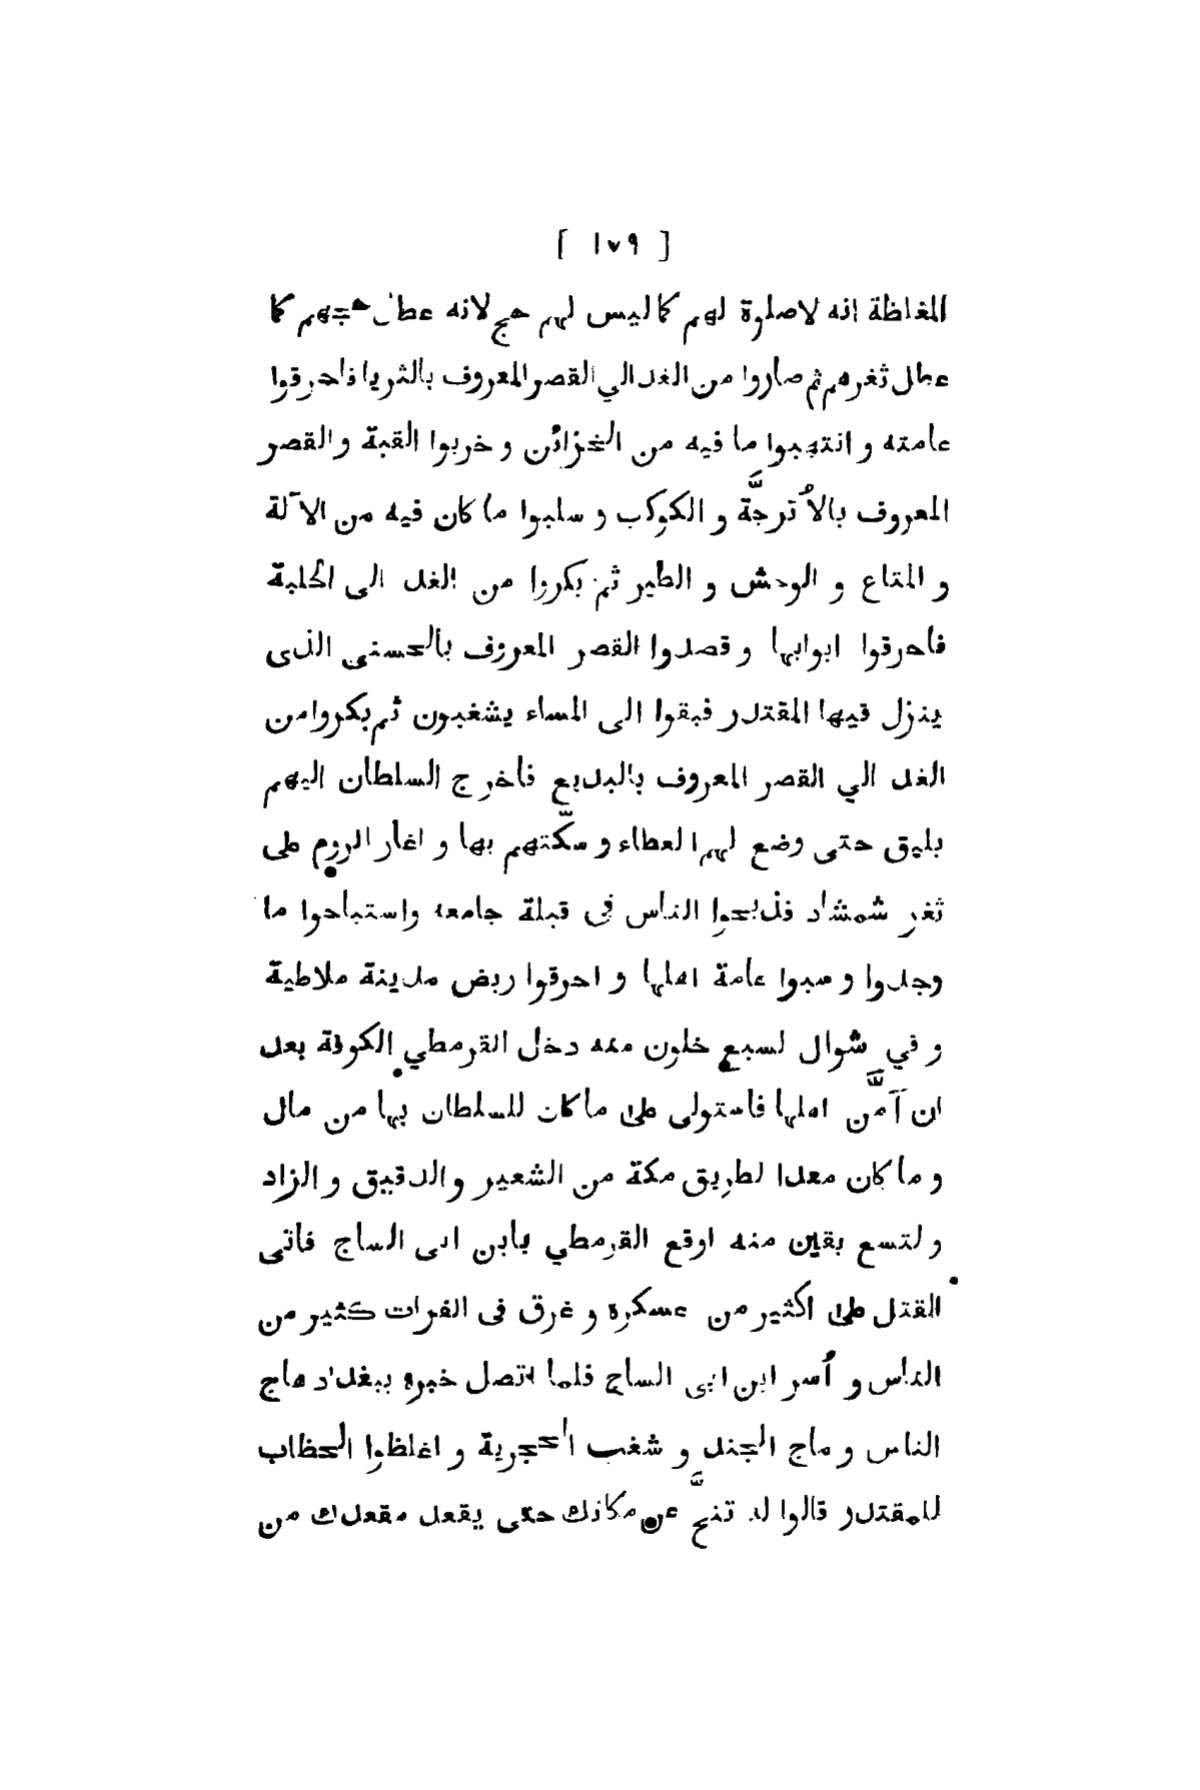 [ ١٧٩ ]
المغاظة انه لاصلوة لهم كما ليس لهم حج لانه عطل حجهم كما
عطل ثغرهم ثم صاروا من الغد الي القصر المعروف بالثريا فاحرقوا
عامته و انتهبوا ما فيه من الخزائن و خربوا القبة و القصر
المعروف بالأترجَّة و الكوكب و سلبوا ما كان فيه من الآلة
و المتاع و الوحش و الطير ثم بكروا من الغد الى الحلبة
فاحرقوا ابوابها و قصدوا القصر المعروف بالحسنى الذى
ينزل فيها المقتدر فبقوا الى المساء يشغبون ثم بكروا من
الغد الي القصر المعروف بالبديع فاخرج السلطان اليهم
بليق حتى وضع لهم العطاء و سكّتهم بها و اغار الروم على
ثغر شمشاد فذبحوا الناس في قبلة جامعه واستباحوا ما
وجدوا و سبوا عامة اهلها و احرقوا ربض مدينة ملاطية
و في شوال لسبع خلون منه دخل القرمطي الكوفة بعد
ان آمَّن اهلها فاستولى على ما كان للسلطان بها من مال
و ما كان معدا لطريق مكة من الشعير والدقيق و الزاد
و لتسع بقين منه اوقع القرمطي بابن ابى الساج فاتى
القتل على اكثير من عسكره و غرق فى الفرات كثير من
الناس و أسر ابن ابى الساج فلما اتصل خبره ببغداد هاج
الناس و ماج الجند و شغب الحجرية و اغلظوا الخطاب
للمقتدر قالوا له تنحَّ عن مكانك حتى يقعد مقعدك من